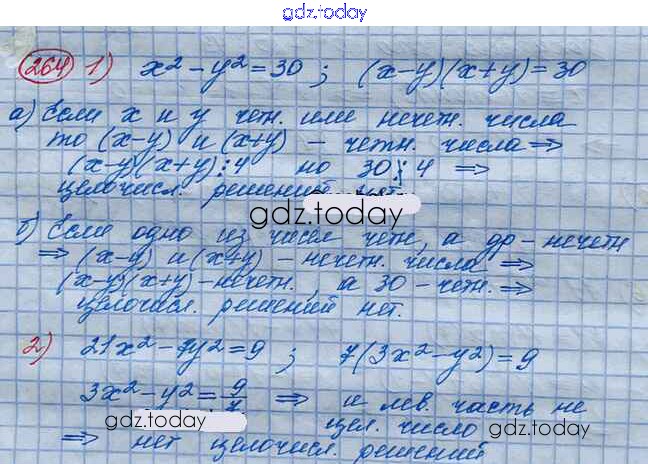 gdz.today
264 1) x² - y² = 30 ; (x-y)(x+y) = 30
а) Если x и y четн. или нечетн. числа
то (x-y) и (x+y) - четн. числа ⇒
(x-y)(x+y) ⋮ 4 но 30 ⋮̸ 4 ⇒
целочисл. решений нет.
gdz.today
б) Если одно из чисел четн, а др - нечетн
⇒ (x-y) и (x+y) - нечетн. числа ⇒
(x-y)(x+y) - нечетн., а 30 - четн. ⇒
целочисл. решений нет.
2) 21x² - 7y² = 9 ; 7(3x² - y²) = 9
3x² - y² = 9/7 ⇒ и лев. часть не
цел. число
gdz.today
gdz.today
⇒ нет целочисл. решений